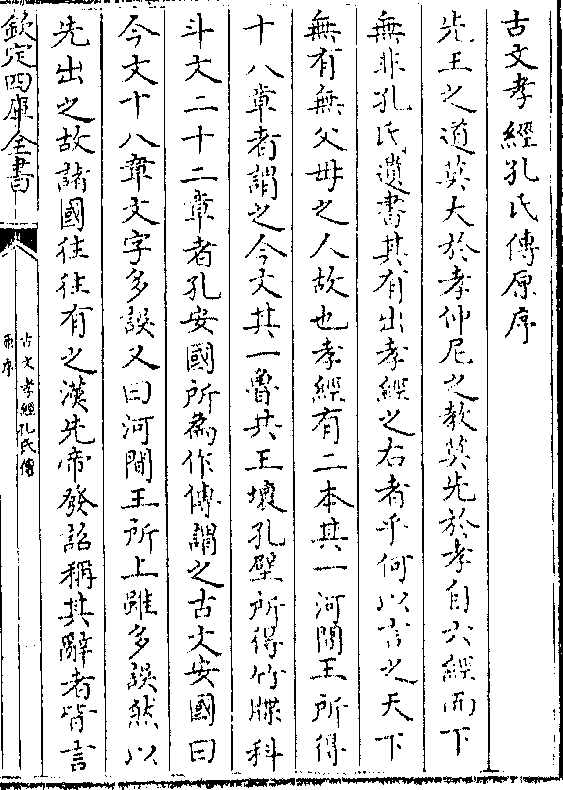 古文孝經孔氏傳原序
先王之道莫大於孝仲尼之教莫先於孝自六經而下
無非孔氏遺書其有出孝經之右者乎何以言之天下
無有無父母之人故也孝經有二本其一河間王所得
十八章者謂之今文其一魯共王壞孔壁所得竹牒科
斗文二十二章者孔安國所為作傳謂之古文安國曰
今文十八章文字多誤又曰河間王所上雖多誤然以
先出之故諸國往往有之漢先帝發詔稱其辭者皆言
欽定四庫全書
古文孝經孔氏傳
原序